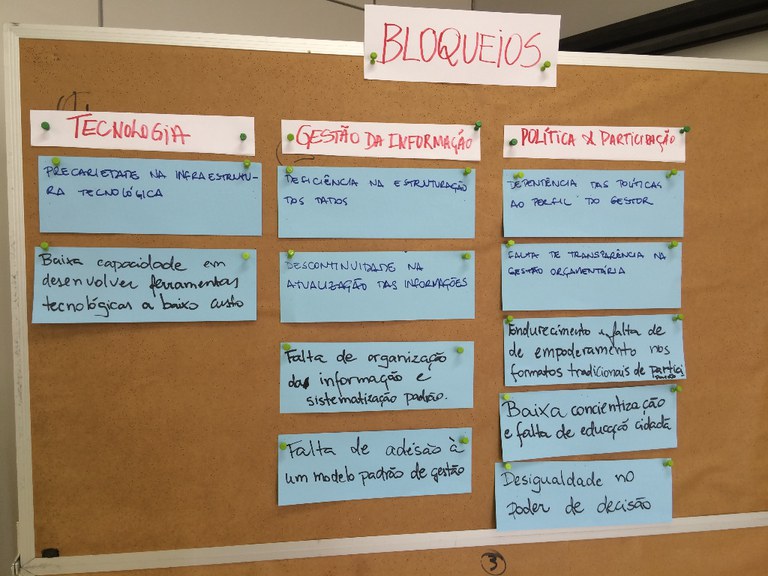 BLOQUEIOS
TECNOLOGIA
PRECARIETADE NA INFRAESTRUTU-
RA TECNOLÓGICA
Baixa capacidade em
desenvolver ferramentas
tecnológicas a baixo custo
GESTÃO DA INFORMAÇÃO
DEFICIÊNCIA NA ESTRUTURAÇÃO
DOS DADOS
DESCONTINUIDADE NA
ATUALIZAÇÃO DAS INFORMAÇÕES
Falta de organização
da informação e
sistematização padrão.
Falta de adesão à
um modelo padrão de gestão
POLÍTICA & PARTICIPAÇÃO
DEPENDÊNCIA DAS POLÍTICAS
AO PERFIL DO GESTOR
FALTA DE TRANSPARÊNCIA NA
GESTÃO ORÇAMENTÁRIA
Endurecimento e falta de
de empoderamento nos
formatos tradicionais de partici
Baixa concientização
e falta de educação cidadã
Desigualdade no
poder de decisão
3